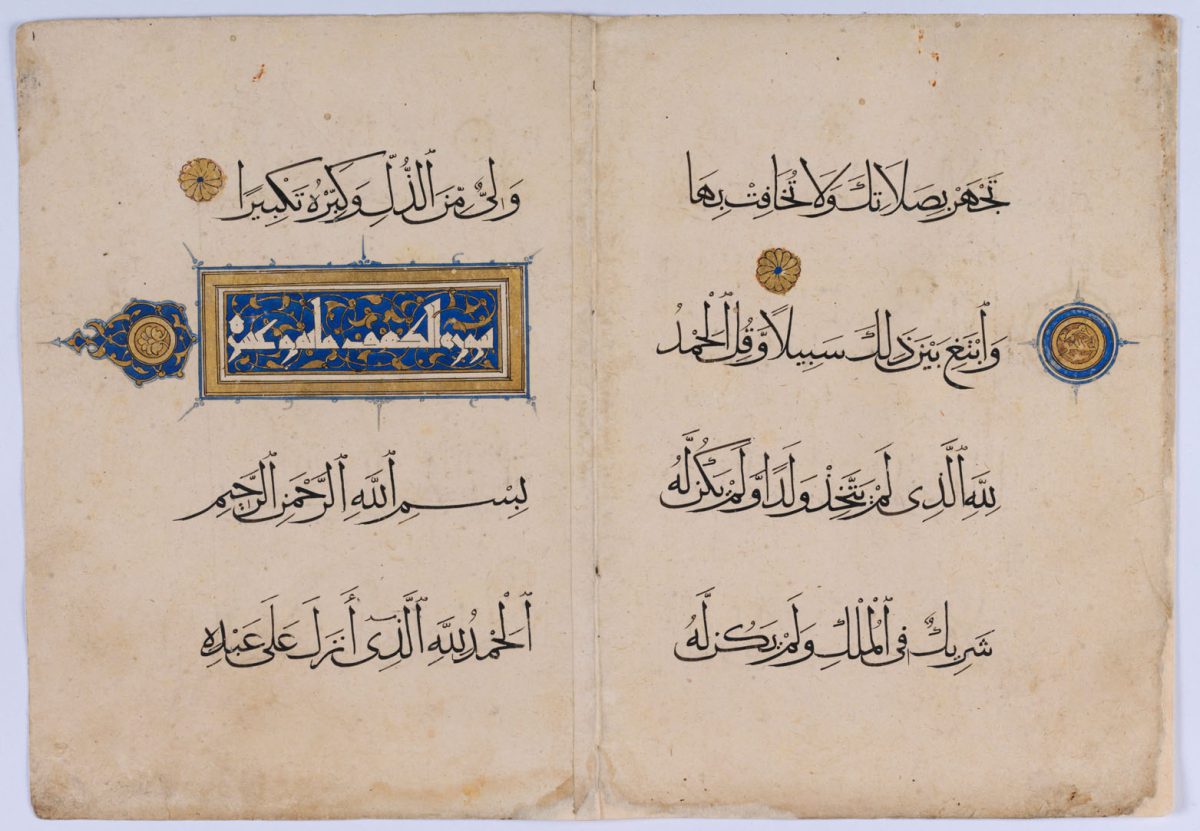 تَجْهَرْ بِصَلَاتِكَ وَلَا تُخَافِتْ بِهَا
وَٱبْتَغِ بَيْنَ ذَلِكَ سَبِيلًا وَّقُلِ ٱلْحَمْدُ
لِلَّهِ ٱلَّذِى لَمْ يَتَّخِذْ وَلَدًا وَّلَمْ يَكُن لَّهُ
شَرِيكٌ فِى ٱلْمُلْكِ وَلَمْ يَكُن لَّهُ
وَلِىٌّ مِّنَ ٱلذُّلِّ وَكَبِّرْهُ تَكْبِيرًا
سورة الكهف مائة و
بِسْمِ ٱللَّهِ ٱلرَّحْمَنِ ٱلرَّحِيمِ
ٱلْحَمْدُ لِلَّهِ ٱلَّذِىٓ أَنزَلَ عَلَى عَبْدِهِ